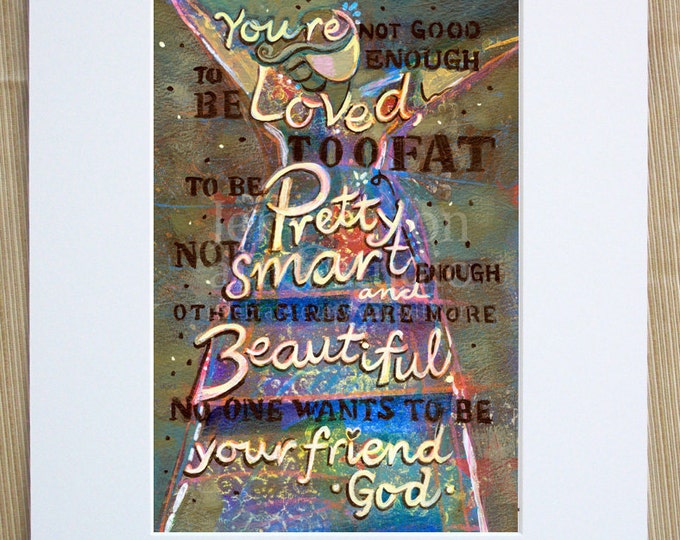 You're NOT GOOD
ENOUGH
TO
BE Loved,
TOO FAT
TO BE Pretty,
NOT smart ENOUGH
and
OTHER GIRLS ARE MORE
Beautiful,
NO ONE WANTS TO BE
your friend
·God·